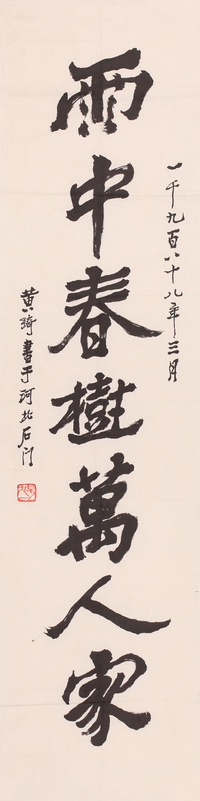 一千九百八十八年三月
雨中春樹萬人家
黄琦書于河北石门